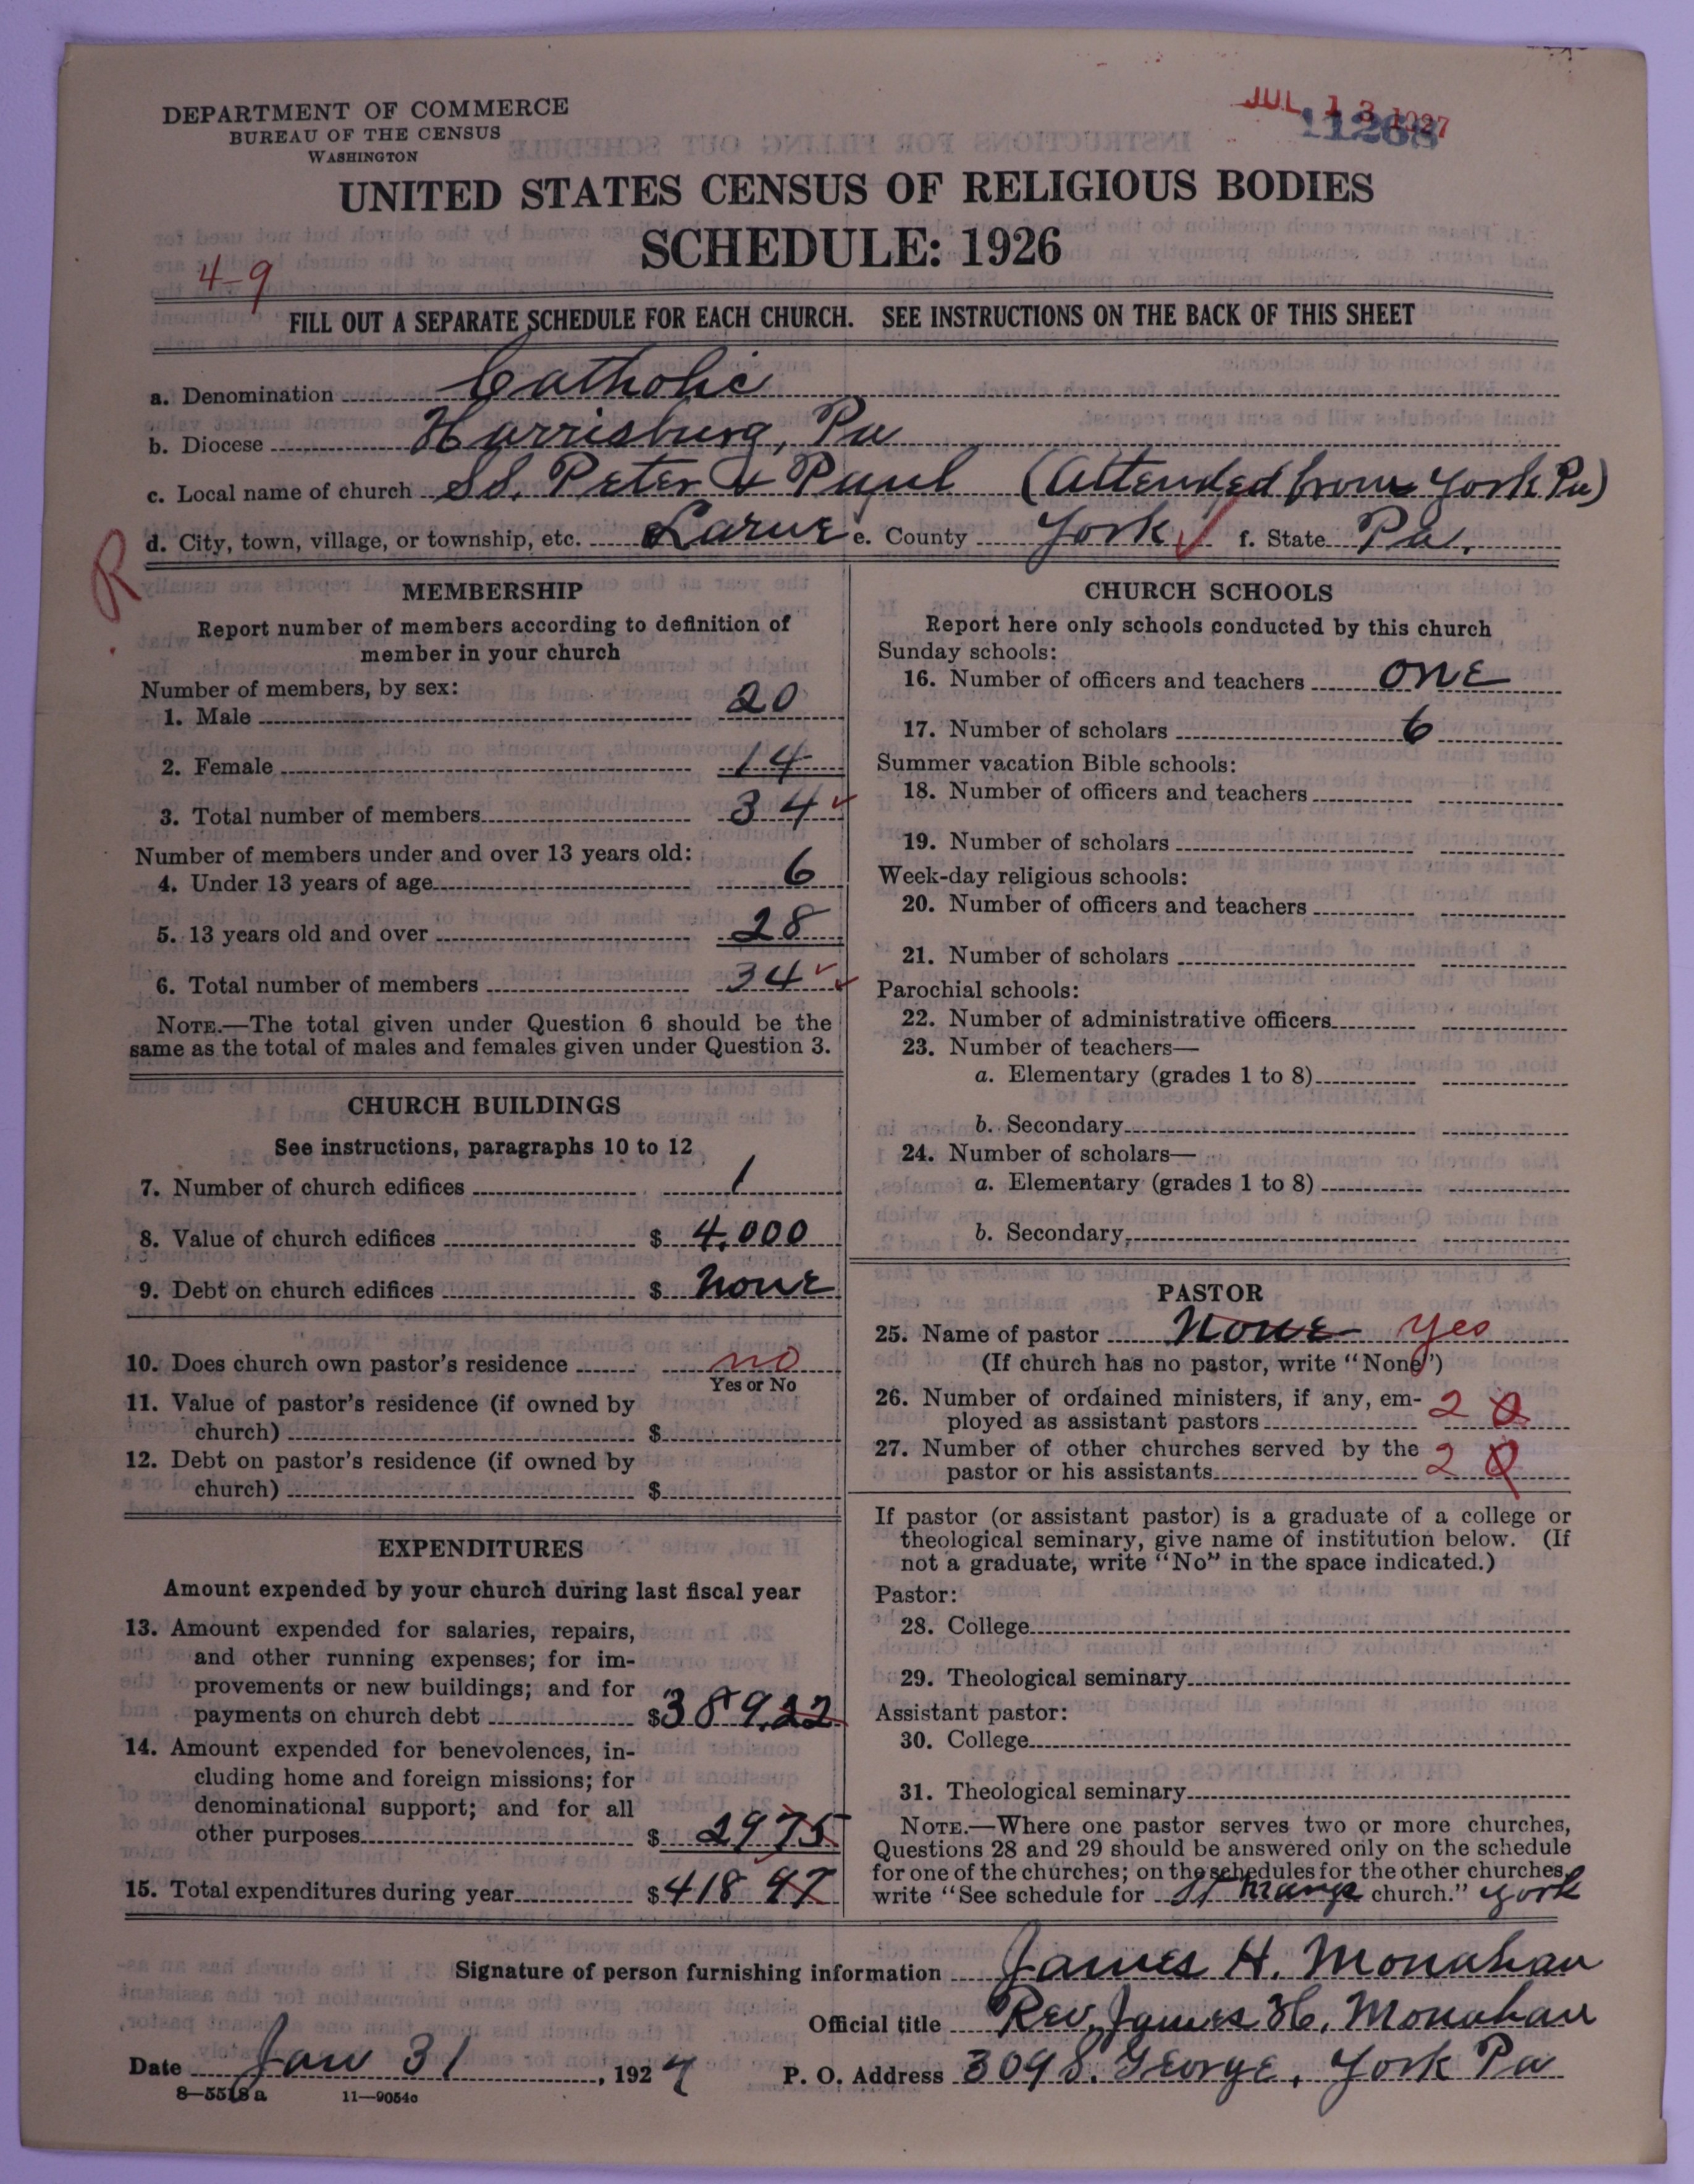 DEPARTMENT OF COMMERCE
BUREAU OF THE CENSUS
WASHINGTON
JUL 13 1927
11268
UNITED STATES CENSUS OF RELIGIOUS BODIES
SCHEDULE: 1926
4-9
FILL OUT A SEPARATE SCHEDULE FOR EACH CHURCH. SEE INSTRUCTIONS ON THE BACK OF THIS SHEET
a. Denomination Catholic
b. Diocese Harrisburg, Pa
c. Local name of church SS. Peter & Paul (Attended from York Pa)
d. City, town, village, or township, etc. Larue e. County York f. State Pa.
R
MEMBERSHIP
Report number of members according to definition of
member in your church
Number of members, by sex:
1. Male 20
2. Female 14
3. Total number of members 34
Number of members under and over 13 years old:
4. Under 13 years of age 6
5. 13 years old and over 28
6. Total number of members 34
NOTE.—The total given under Question 6 should be the
same as the total of males and females given under Question 3.
CHURCH BUILDINGS
See instructions, paragraphs 10 to 12
7. Number of church edifices 1
8. Value of church edifices $ 4,000
9. Debt on church edifices $ None
10. Does church own pastor's residence no
Yes or No
11. Value of pastor's residence (if owned by
church) $
12. Debt on pastor's residence (if owned by
church) $
EXPENDITURES
Amount expended by your church during last fiscal year
13. Amount expended for salaries, repairs,
and other running expenses; for im-
provements or new buildings; and for
payments on church debt $389.22
14. Amount expended for benevolences, in-
cluding home and foreign missions; for
denominational support; and for all
other purposes $ 29 75
15. Total expenditures during year $418 97
CHURCH SCHOOLS
Report here only schools conducted by this church
Sunday schools:
16. Number of officers and teachers one
17. Number of scholars 6
Summer vacation Bible schools:
18. Number of officers and teachers
19. Number of scholars
Week-day religious schools:
20. Number of officers and teachers
21. Number of scholars
Parochial schools:
22. Number of administrative officers
23. Number of teachers—
a. Elementary (grades 1 to 8)
b. Secondary
24. Number of scholars—
a. Elementary (grades 1 to 8)
b. Secondary
PASTOR
25. Name of pastor None yes
(If church has no pastor, write "None")
26. Number of ordained ministers, if any, em-
ployed as assistant pastors 2 0
27. Number of other churches served by the
pastor or his assistants 2 0
If pastor (or assistant pastor) is a graduate of a college or
theological seminary, give name of institution below. (If
not a graduate, write "No" in the space indicated.)
Pastor:
28. College
29. Theological seminary
Assistant pastor:
30. College
31. Theological seminary
NOTE.—Where one pastor serves two or more churches,
Questions 28 and 29 should be answered only on the schedule
for one of the churches; on the schedules for the other churches,
write "See schedule for St Marys church." York
Signature of person furnishing information James H. Monahan
Official title Rev. James H. Monahan
Date Jan 31, 1927 P. O. Address 309 S. George, York Pa
8—5518 a 11—9054c